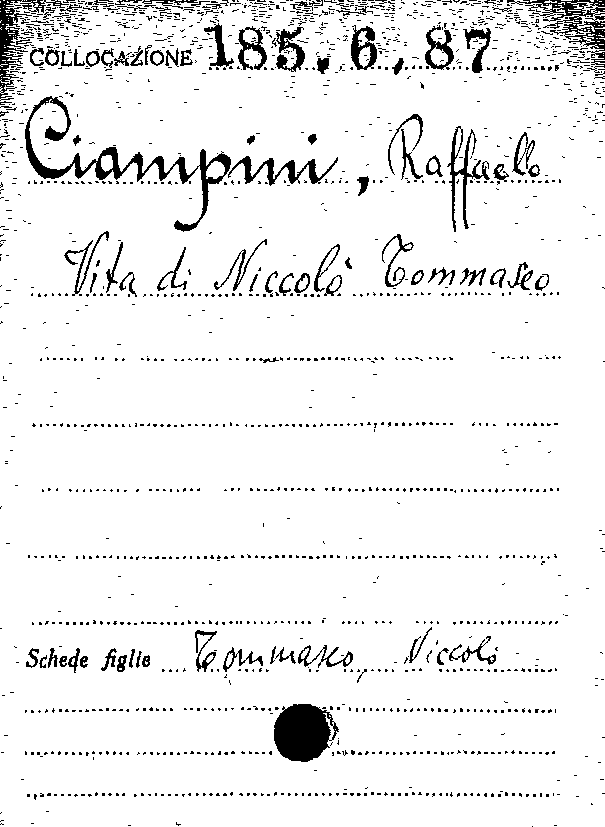 COLLOCAZIONE 185.6.87
Ciampini, Raffaello
Vita di Niccolò Tommaseo
Schede figlie Tommaseo, Niccolò